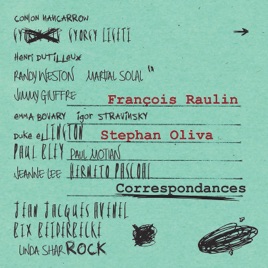 CONLON NANCARROW
GYORGY LIGETI
HENRI DUTILLEUX
RANDY WESTON MARTIAL SOLAL
JIMMY GIUFFRE
François Raulin
EMMA BOVARY IGOR STRAVINSKY
DUKE ELLINGTON
Stephan Oliva
PAUL BLEY PAUL MOTIAN
JEANNE LEE HERMETO PASCOAL
Correspondances
JEAN JACQUES AVENEL
BIX BEIDERBECKE
LINDA SHARROCK